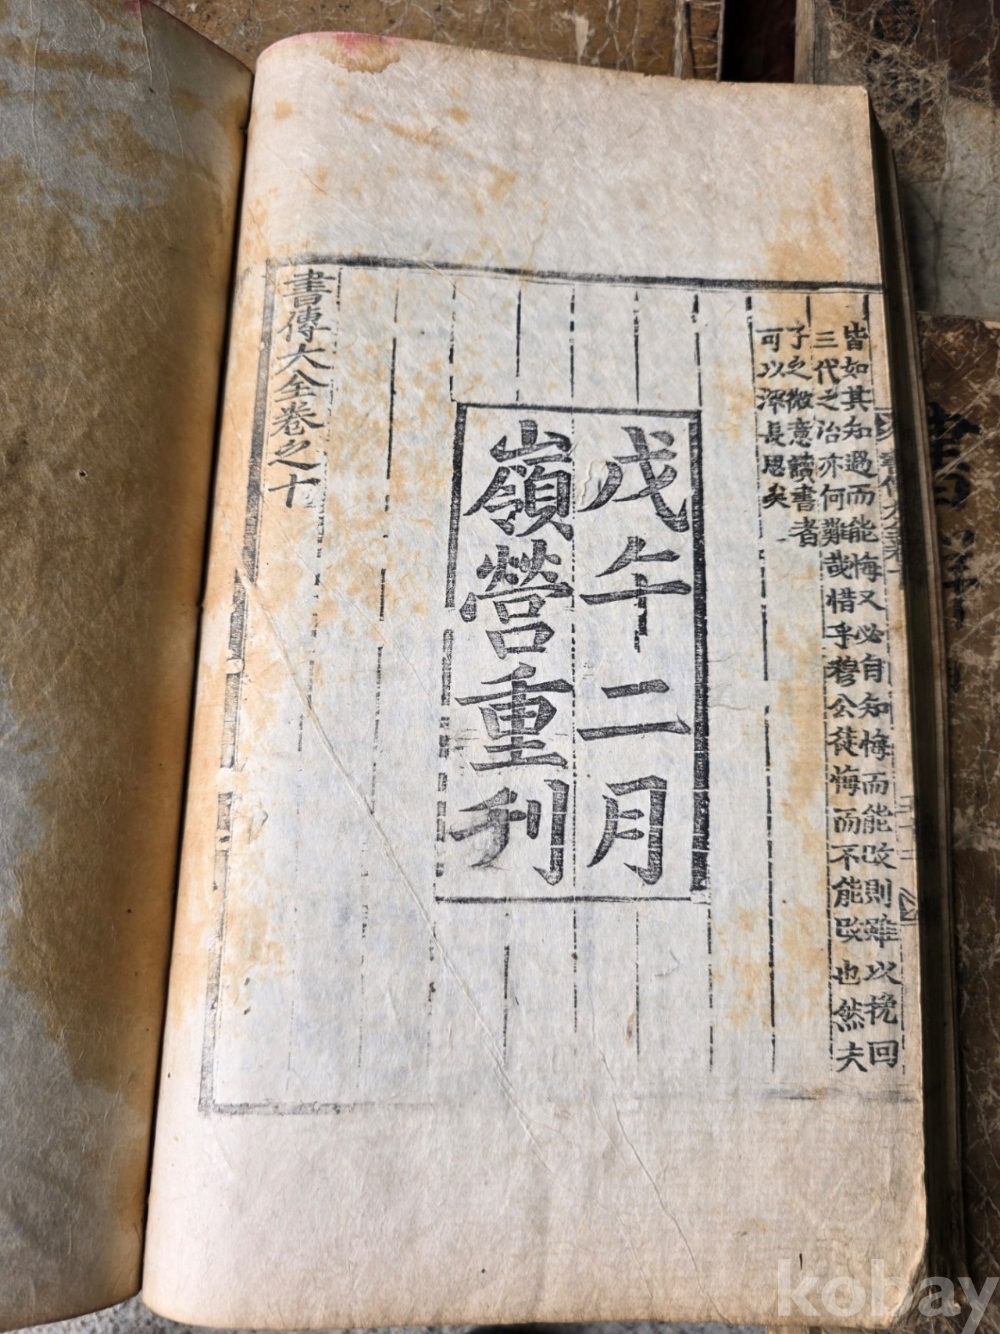 皆如其知過而能悔又必自知悔而能改則雖以挽回
三代之治亦何難哉惜乎穆公徒悔而不能改也然夫
子之微意讀書者
可以深長思矣
戊午二月
嶺營重刊
書傳大全卷之十
kobay